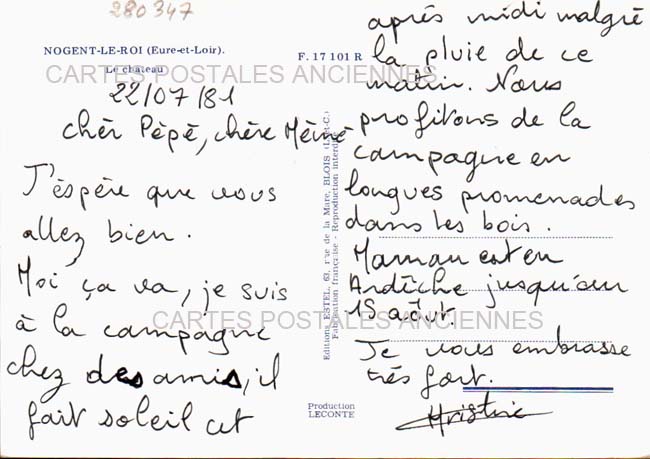 280347
NOGENT-LE-ROI (Eure-et-Loir).
Le château
F. 17 101 R
CARTES POSTALES ANCIENNES
22/07/81
chèr Pèpé, chère Mémé
J'éspère que vous
allez bien.
Moi ça va, je suis
à la campagne
chez des amis, il
fait soleil cet
après midi malgré
la pluie de ce
matin. Nous
profitons de la
campagne en
longues promenades
dans les bois.
Maman est en
Ardèche jusqu'au
15 août.
Je vous embrasse
très fort.
Christine
CARTES POSTALES ANCIENNES
Editions ESTEL, 63, rue de la Mare, BLOIS (L.-et-C.)
Fabrication française - Reproduction interdite
Production
LECONTE